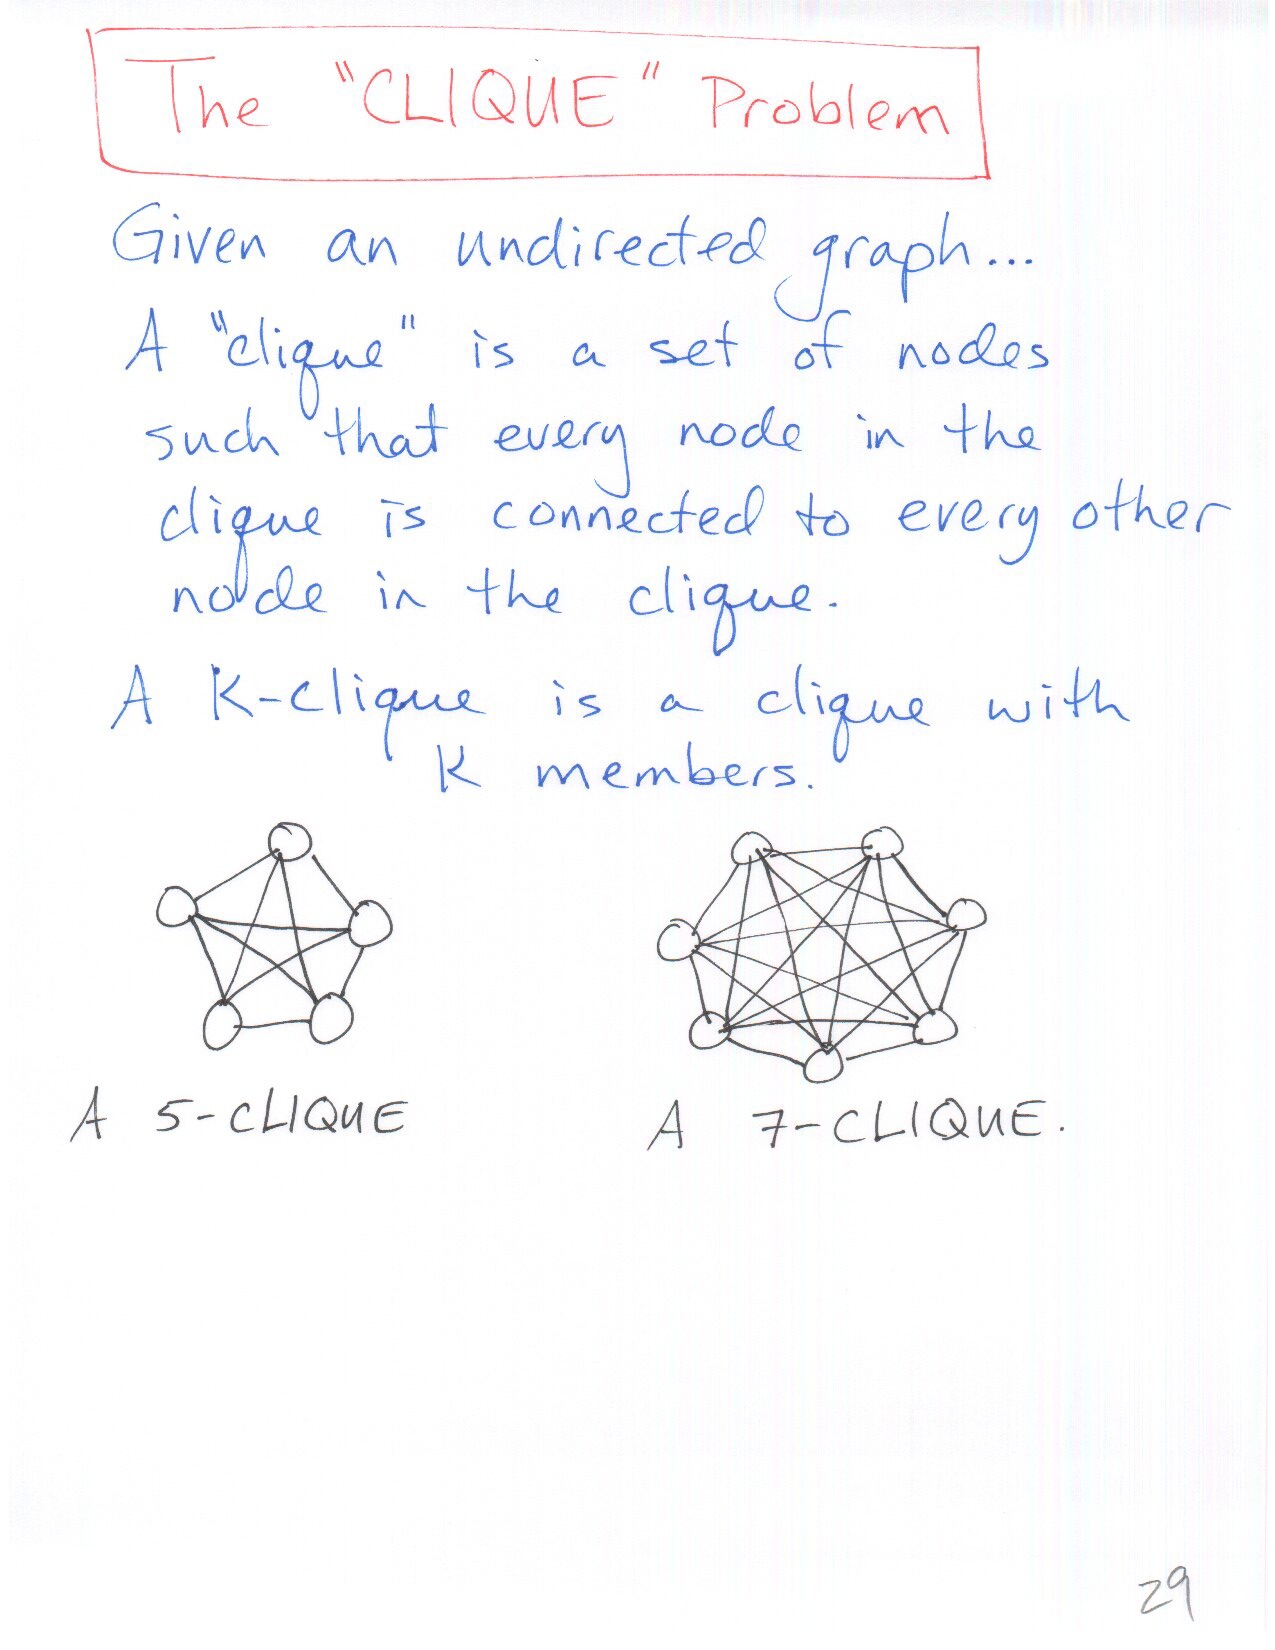 The "CLIQUE" Problem
Given an undirected graph...
A "clique" is a set of nodes
such that every node in the
clique is connected to every other
node in the clique.
A K-clique is a clique with
K members.
A 5-CLIQUE
A 7-CLIQUE.
29